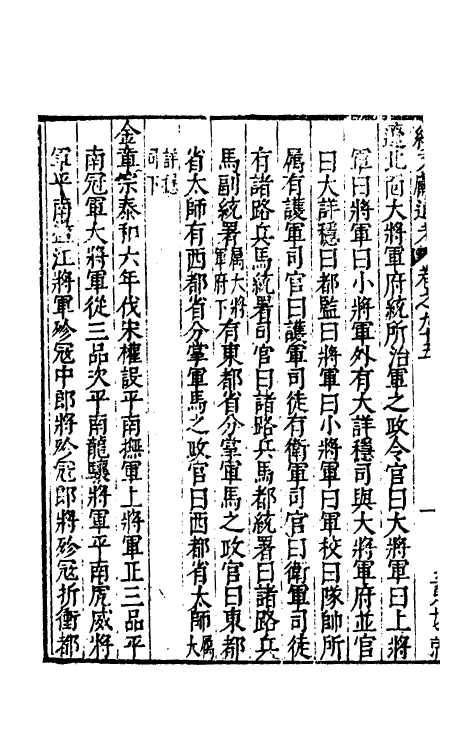 續文獻通考 卷之九十五 一
遼北面大將軍府統所治軍之政令官曰大將軍曰上將
軍曰將軍曰小將軍外有大詳穩司與大將軍府並官
曰大詳穩曰都監曰將軍曰小將軍曰軍校曰隊帥所
屬有護軍司官曰護軍司徒有衛軍司官曰衛軍司徒
有諸路兵馬統署司官曰諸路兵馬都統署曰諸路兵
馬副統署屬大將軍府下有東都省分掌軍馬之政官曰東都
省太師有西都省分掌軍馬之政官曰西都省太師屬大
詳穩司下
金章宗泰和六年伐宋權設平南撫軍上將軍正三品平
南冠軍大將軍從三品次平南龍驤將軍平南虎威將
軍平南盪江將軍殄冠中郎將殄冠郎將殄冠折衝都